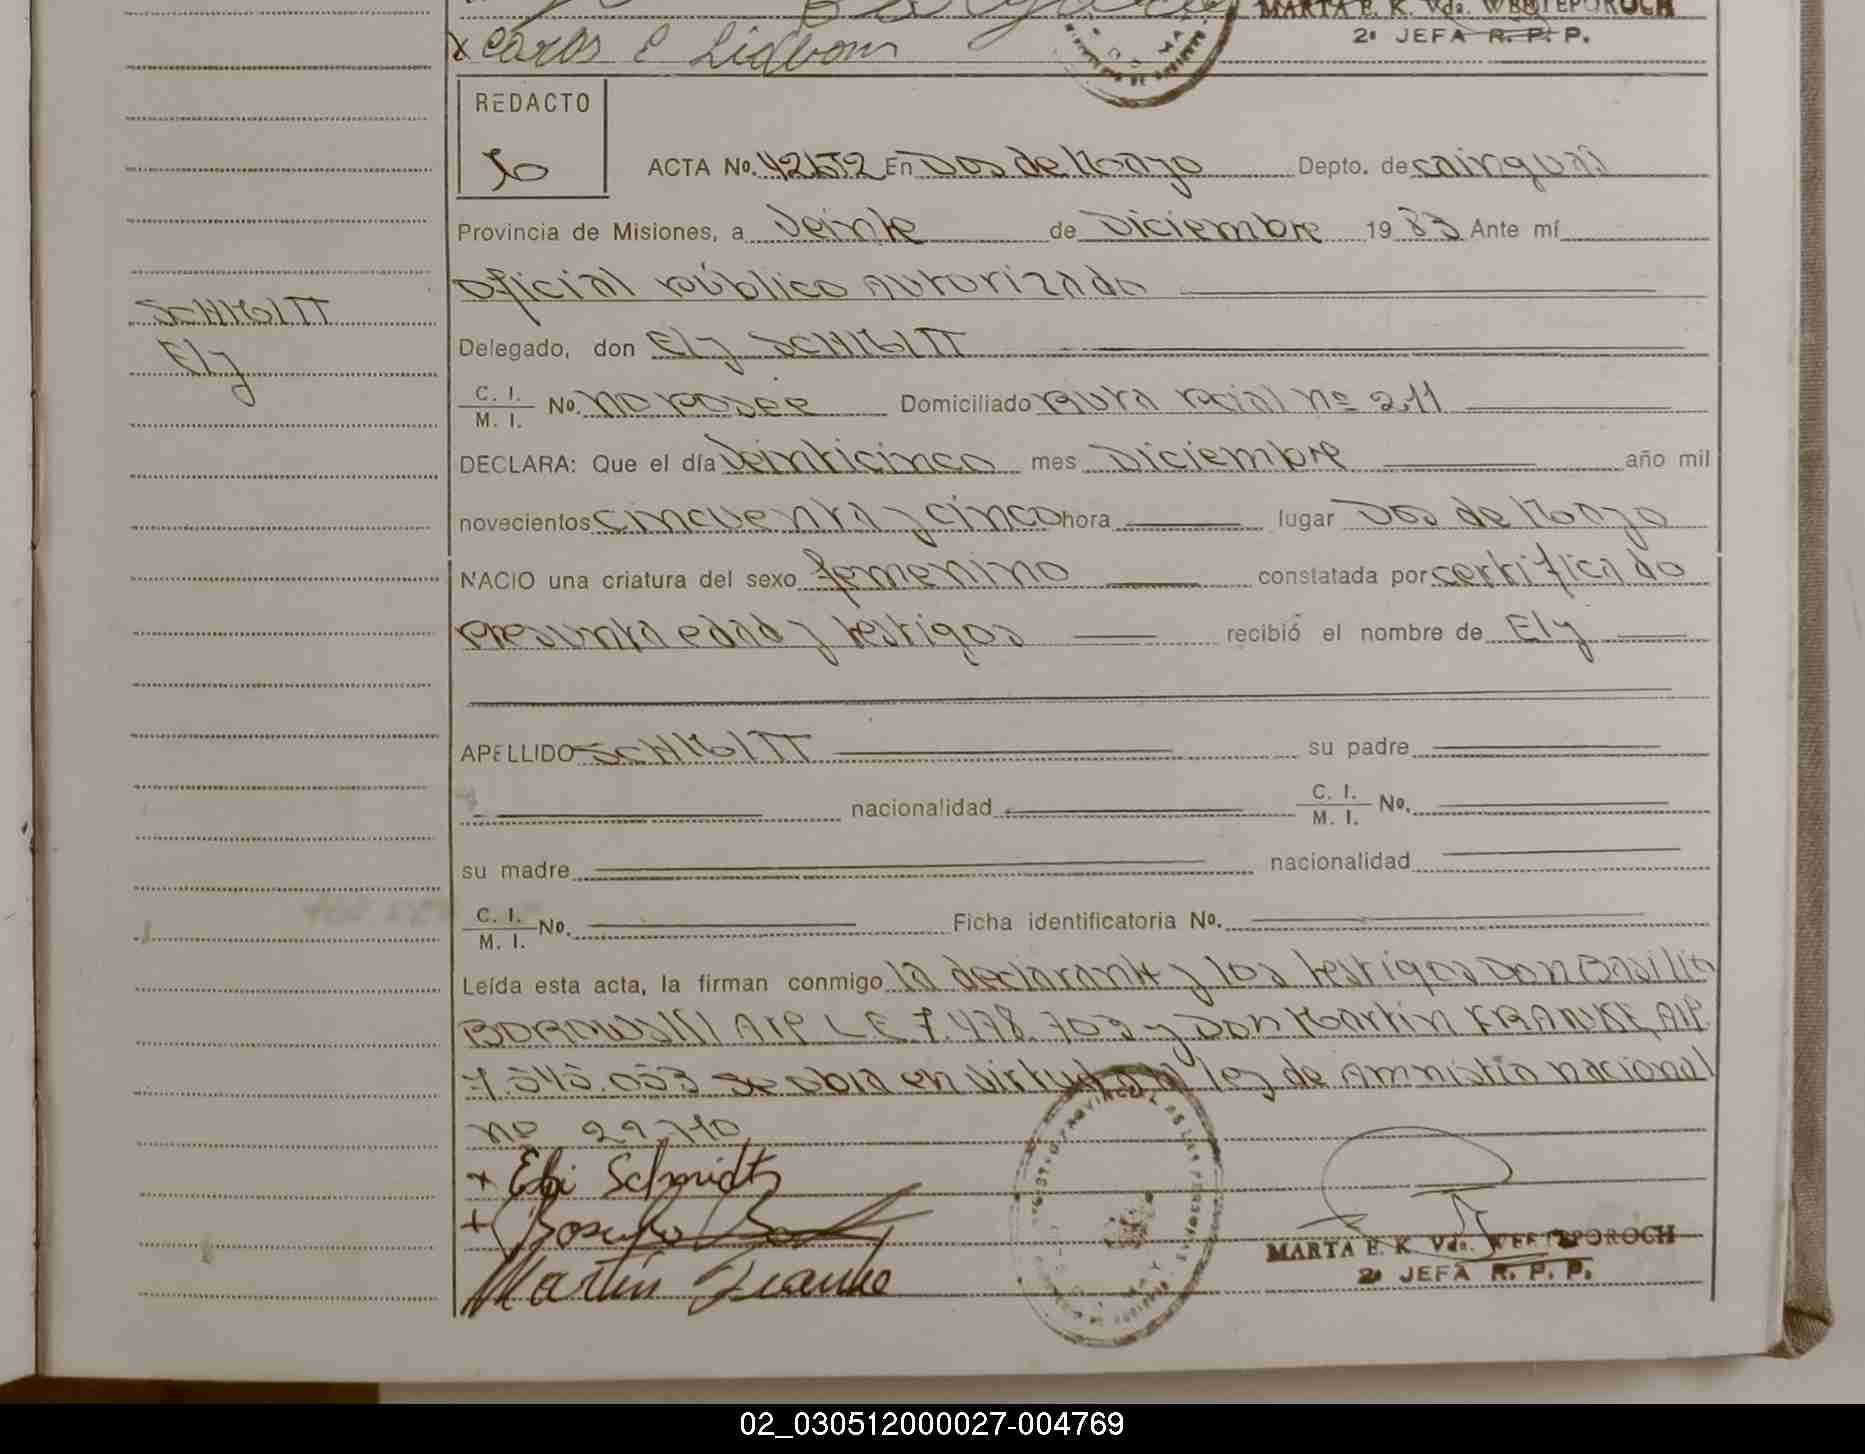 Carlos E Lindbom
MARTA E. K. Vda. WESTEPOROCH
2ª JEFA R. P. P.
REDACTO
ACTA No. En Dos de Mayo Depto. de cainguas
Provincia de Misiones, a Veinte de Diciembre 1983 Ante mí
oficial público autorizado
SCHMITT
Ely
Delegado, don Ely SCHMITT
C. I. M. I. No. no posee Domiciliado Ruta Nº 211
DECLARA: Que el día Veinticinco mes Diciembre año mil
novecientos cincuenta y cinco hora lugar Dos de Mayo
NACIO una criatura del sexo femenino constatada por certificado
presunta edad y testigos recibió el nombre de Ely
APELLIDO SCHMITT su padre
nacionalidad C. I. M. I. No.
su madre nacionalidad
C. I. M. I. No. Ficha identificatoria No.
Leída esta acta, la firman conmigo la declarante y los testigos Don Basilio
BOROWSKI MIP L.E 7.478.703 y Don Martin FRANKE MIP
7.545.053 se obra en virtud a ley de Amnistia nacional
nº
+ Eli Schmidt
+
Martin Franke
MARTA E. K. Vda. WESTEPOROCH
2ª JEFA R. P. P.
02_030512000027-004769